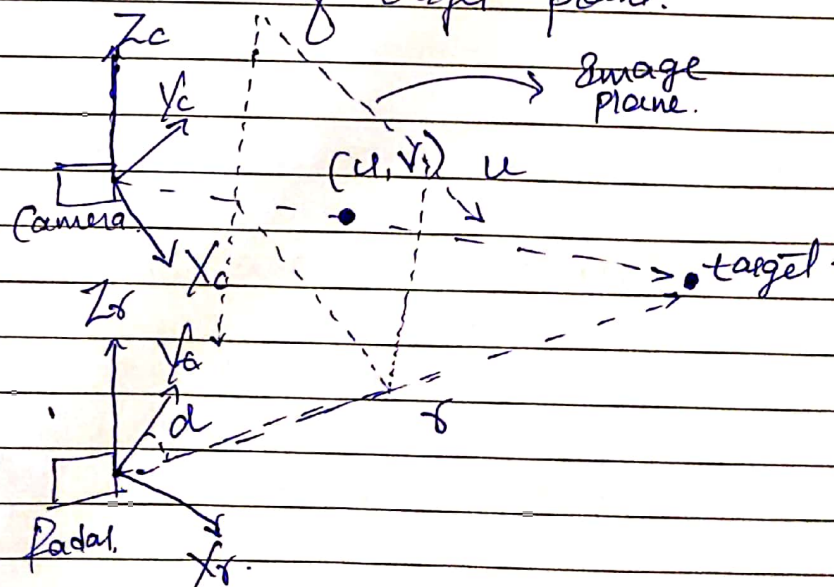 target plane.
Zc
Yc
Image
plane.
(u, v)
u
Camera.
Xc
target.
Zr
Yr
α
r
Radar.
Xr.